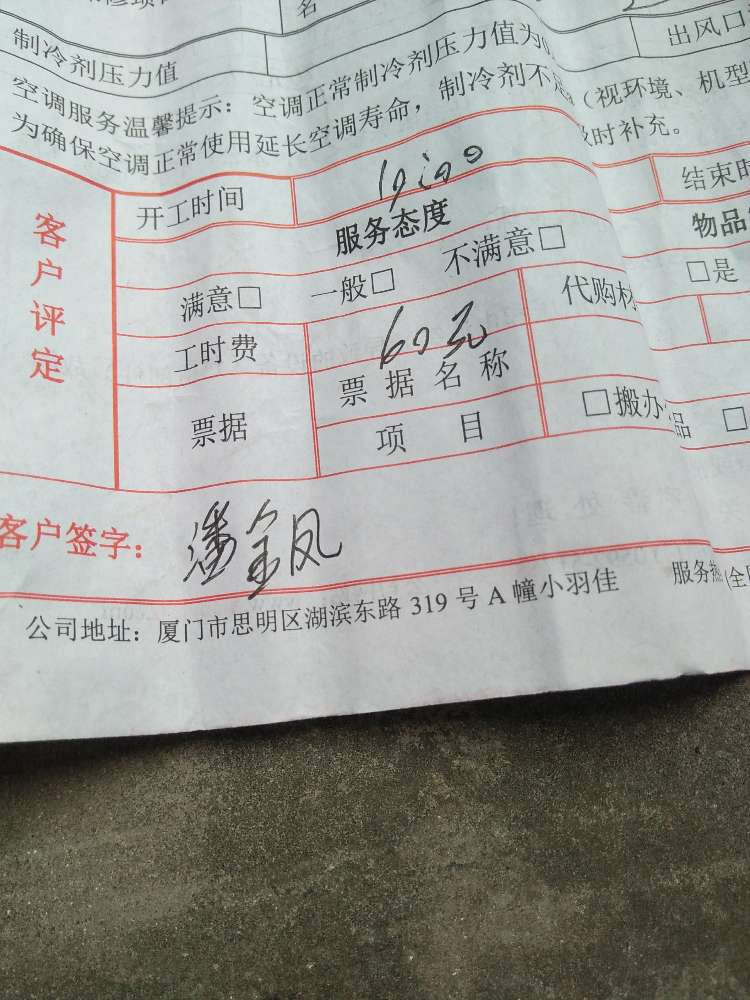 名
制冷剂压力值
出风口
空调服务温馨提示：空调正常制冷剂压力值为0
（视环境、机型
为确保空调正常使用延长空调寿命，制冷剂不足
时补充。
客户评定
开工时间
10:00
结束时
服务态度
物品
满意□ 一般□ 不满意□
□是
工时费
60元
代购材
票据
票据名称
项目
□搬办
品 □
客户签字：
潘金凤
公司地址：厦门市思明区湖滨东路 319 号 A 幢小羽佳
服务热
(全